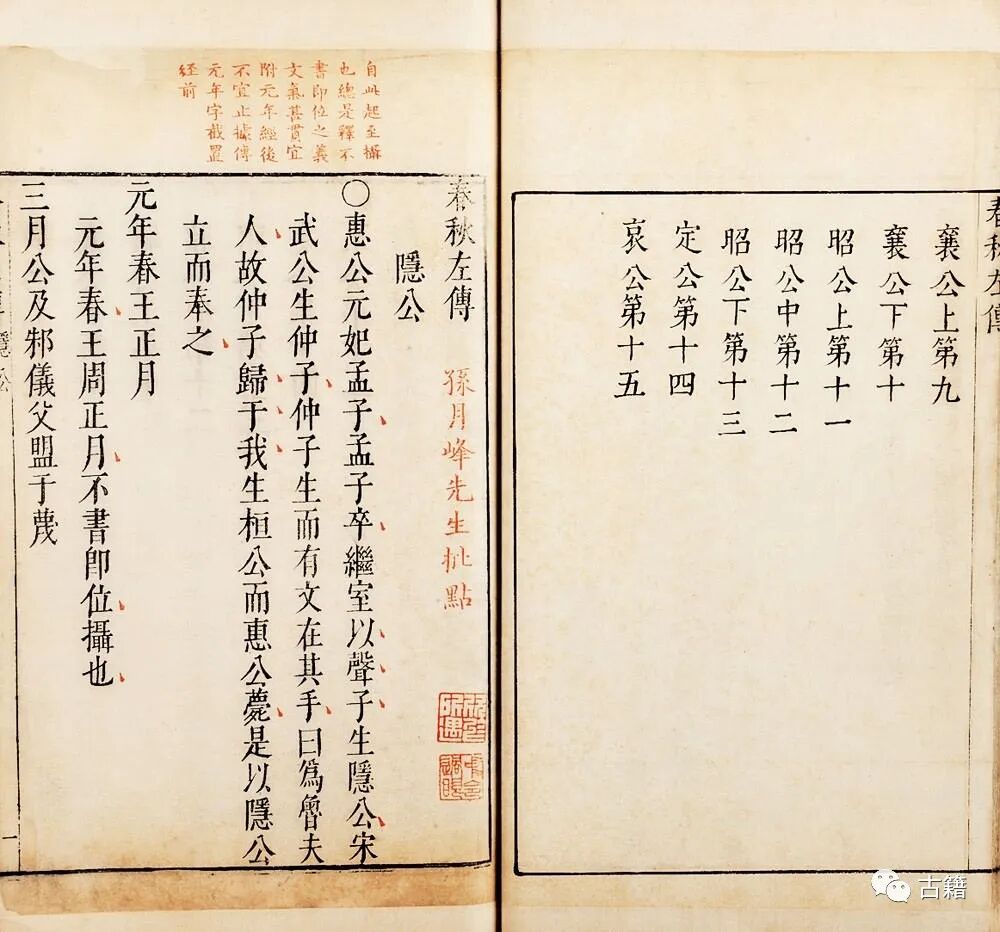 春秋左傳
襄公上第九
襄公下第十
昭公上第十一
昭公中第十二
昭公下第十三
定公第十四
哀公第十五
自此起至攝
也總是釋不
書即位之義
文氣甚貫宜
附元年經後
不宜止據傳
元年字截置
經前
春秋左傳 孫月峰先生批點
隱公
○惠公元妃孟子孟子卒繼室以聲子生隱公宋
武公生仲子仲子生而有文在其手曰爲魯夫
人故仲子歸于我生桓公而惠公薨是以隱公
立而奉之
元年春王正月
元年春王周正月不書卽位攝也
三月公及邾儀父盟于蔑
隱公
一
古籍